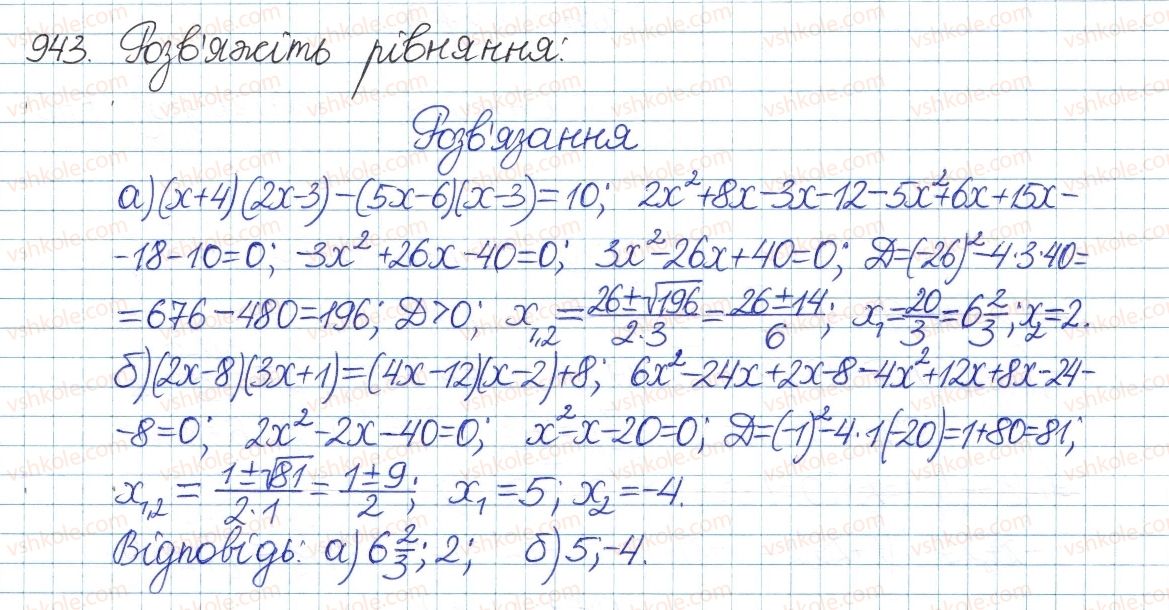 943. Розв'яжіть рівняння:
Розв'язання
а) (x+4)(2x-3)-(5x-6)(x-3)=10; 2x²+8x-3x-12-5x²+6x+15x-
-18-10=0; -3x²+26x-40=0; 3x²-26x+40=0; D=(-26)²-4·3·40=
=676-480=196; D>0; x₁,₂=(26±√196)/(2·3)=(26±14)/6; x₁=20/3=6 2/3; x₂=2.
б) (2x-8)(3x+1)=(4x-12)(x-2)+8; 6x²-24x+2x-8-4x²+12x+8x-24-
-8=0; 2x²-2x-40=0; x²-x-20=0; D=(-1)²-4·1(-20)=1+80=81;
x₁,₂=(1±√81)/(2·1)=(1±9)/2; x₁=5; x₂=-4.
Відповідь: а) 6 2/3; 2; б) 5; -4.